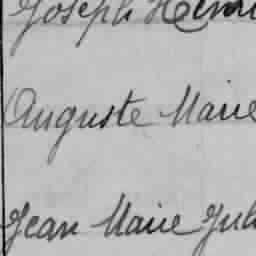 Joseph Henri
Auguste Marie
Jean Marie Jul